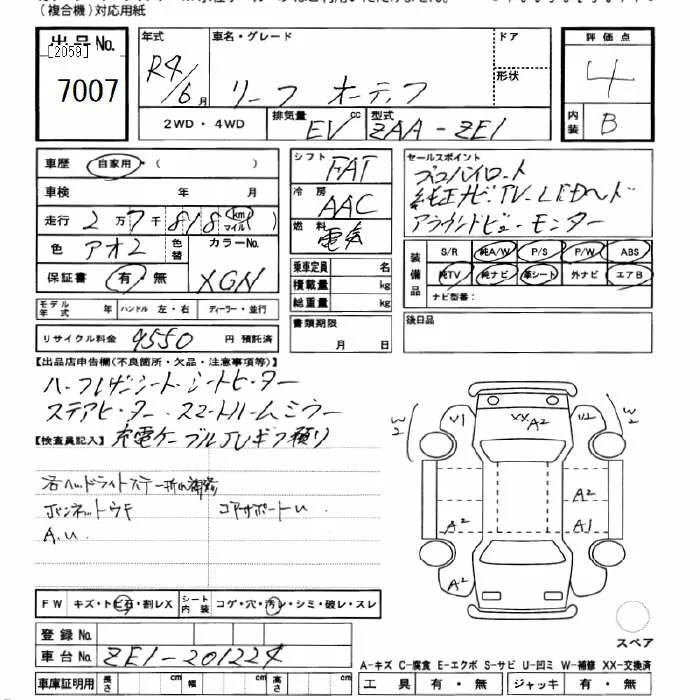 (複合機)対応用紙
出品No.
[2059]
7007
年式
R4/6月
車名・グレード
リーフ オーテック
ドア
形状
評価点
4
内装
B
2WD・4WD
排気量
EV
cc
型式
ZAA-ZE1
車歴 自家用・( )
車検 年 月
走行 2万7千818 (km マイル)
色 アオ2 色替 カラーNo.
保証書 有・無 XGN
モデル年式 年 ハンドル 左・右 ディーラー・並行
リサイクル料金 9550 円 預託済
シフト FAT
冷房 AAC
燃料 電気
乗車定員 名
積載量 kg
総重量 kg
書類期限
月 日
セールスポイント
プロパイロット
純正ナビ・TV・LEDヘッド
アラウンドビューモニター
装備品
S/R 純A/W P/S P/W ABS
純TV 純ナビ 革シート 外ナビ エアB
ナビ型番:
後日品
【出品店申告欄(不良箇所・欠品・注意事項等)】
ハーフレザーシート・シートヒーター
ステアヒーター・スマートルームミラー
【検査員記入】 充電ケーブルJUギフ預り
右ヘッドライトステー折れ補修
ボンネットウキ コアサポートU
A.U.
W2 U1 XX A2 U2 W2
A2
A2 A1
A2
FW キズ・トビ石・割レX シート内装 コゲ・穴・汚レ・シミ・破レ・スレ
スペア
登録No.
車台No. ZE1-201224
A-キズ C-腐食 E-エクボ S-サビ U-凹ミ W-補修 XX-交換済
車庫証明用 長さ cm 幅 cm 高さ cm
工具 有・無 ジャッキ 有・無